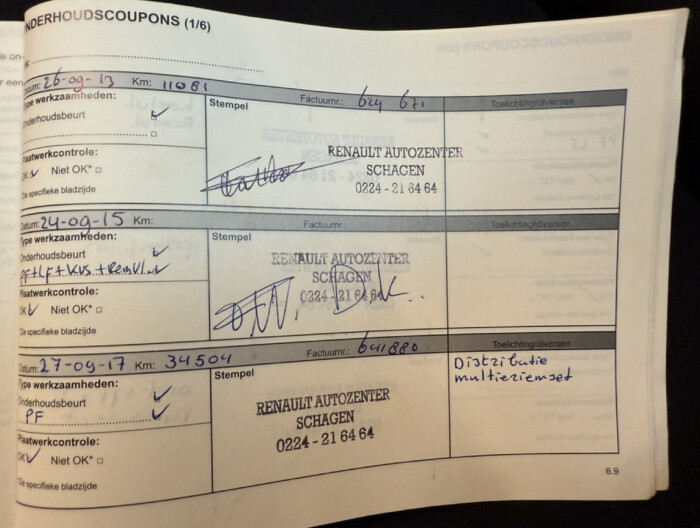 NDERHOUDSCOUPONS (1/6)
tum: 26-09-13 Km: 11081 Factuurnr.: 624 671 Toelichting/diversen
Type werkzaamheden:
Onderhoudsbeurt
Plaatwerkcontrole:
OK Niet OK*
*Zie specifieke bladzijde
Stempel
RENAULT AUTOZENTER
SCHAGEN
0224-21 64 64
Datum: 24-09-15 Km: Factuurnr.: Toelichting/diversen
Type werkzaamheden:
Onderhoudsbeurt
PF+LF+KVS+RemVl.
Plaatwerkcontrole:
OK Niet OK*
*Zie specifieke bladzijde
Stempel
RENAULT AUTOZENTER
SCHAGEN
0224-21 64 64
Datum: 27-09-17 Km: 34504 Factuurnr.: 641880 Toelichting/diversen
Type werkzaamheden:
Onderhoudsbeurt
PF
Plaatwerkcontrole:
OK Niet OK*
*Zie specifieke bladzijde
Stempel
RENAULT AUTOZENTER
SCHAGEN
0224-21 64 64
Distributie
multieriemset
6.9